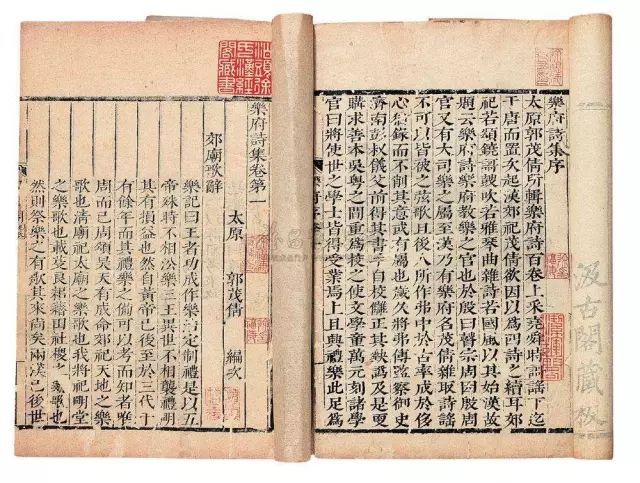 汲古閣藏板
樂府詩集序
太原郭茂倩所輯樂府詩百卷上采堯舜時謌謠下迄
于唐而置次起漢郊祀茂倩欲因以爲四詩之續耳郊
祀若頌鐃謌鼓吹若雅琴曲雜詩若國風以其始漢故
題云樂府詩樂府教樂之官也於殷曰瞽宗周因殷周
官又有大司樂之屬至漢乃有樂府名茂倩雜取詩謠
不可以皆被之弦歌且後人所作弗中於古率成於侈
心猶錄而不削其意或有屬也歲久將弗傳監察御史
濟南彭叔儀父前得其書手自校讎正其缺訛及是更
購求善本吳粤之間重爲校之使文學童萬元刻諸學
官曰將使世之學士皆得受業焉上且興禮樂此足爲
樂府詩集卷第一
太原 郭茂倩 編次
郊廟歌辭
樂記曰王者功成作樂治定制禮是以五
帝殊時不相㳂樂三王異世不相襲禮明
其有損益也然自黃帝已後至於三代千
有餘年而其禮樂之備可以考而知者唯
周而已周頌昊天有成命郊祀天地之樂
歌也清廟祀太廟之樂歌也我將祀明堂
之樂歌也載芟良耜藉田社稷之樂歌也
然則祭樂之有歌其來尚矣兩漢已後世